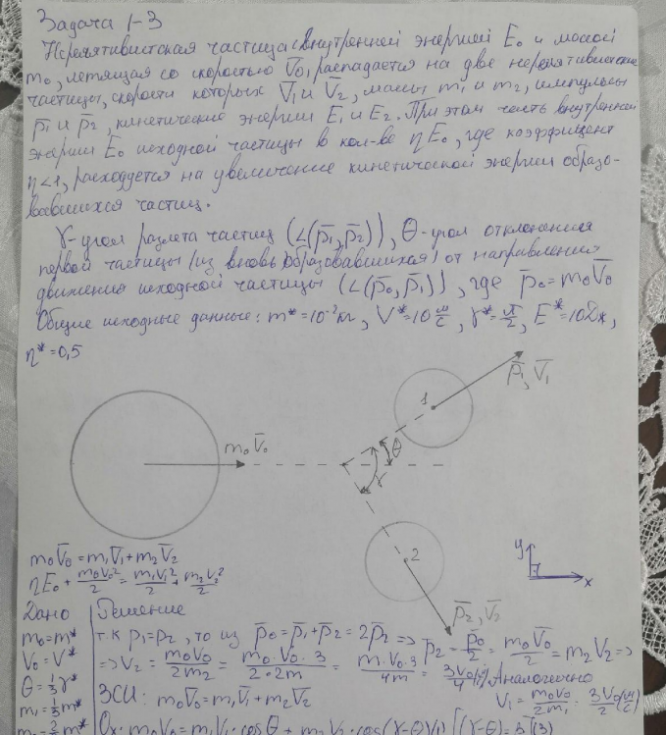 Задача 1-3
Нерелятивистская частица с внутренней энергией E₀ и массой
m₀, летящая со скоростью V̄₀, распадается на две нерелятивистские
частицы, скорости которых V̄₁ и V̄₂, массы m₁ и m₂, импульсы
p̄₁ и p̄₂, кинетические энергии E₁ и E₂. При этом часть внутренней
энергии E₀ исходной частицы в кол-ве ηE₀, где коэффициент
η<1, расходуется на увеличение кинетической энергии образо-
вавшихся частиц.
γ-угол разлета частиц (∠(p̄₁,p̄₂)), θ-угол отклонения
первой частицы (из вновь образовавшихся) от направления
движения исходной частицы (∠(p̄₀,p̄₁)), где p̄₀=m₀V̄₀
Общие исходные данные: m*=10⁻²кг, V*=10 м/с, γ*=π/2, E*=10Дж,
η*=0,5
p̄₁, V̄₁
1
m₀V̄₀
θ
γ
2
p̄₂, V̄₂
y
x
m₀V̄₀=m₁V̄₁+m₂V̄₂
ηE₀+m₀V₀²/2=m₁V₁²/2+m₂V₂²/2
Дано
m₀=m*
V₀=V*
θ=1/3γ*
m₁=1/3m*
m₂=2/3m*
Решение
т.к p₁=p₂, то из p̄₀=p̄₁+p̄₂=2p̄₂ => p̄₂=p̄₀/2=m₀V̄₀/2=m₂V̄₂=>
=>V₂=m₀V₀/2m₂=m₀·V₀·3/2·2m=m·V₀·3/4m=3V₀/4 Аналогично
V₁=m₀V₀/2m₁=3V₀/2 (м/с)
ЗСИ: m₀V̄₀=m₁V̄₁+m₂V̄₂
Ox: m₀V₀=m₁V₁·cosθ+m₂V₂·cos(γ-θ)